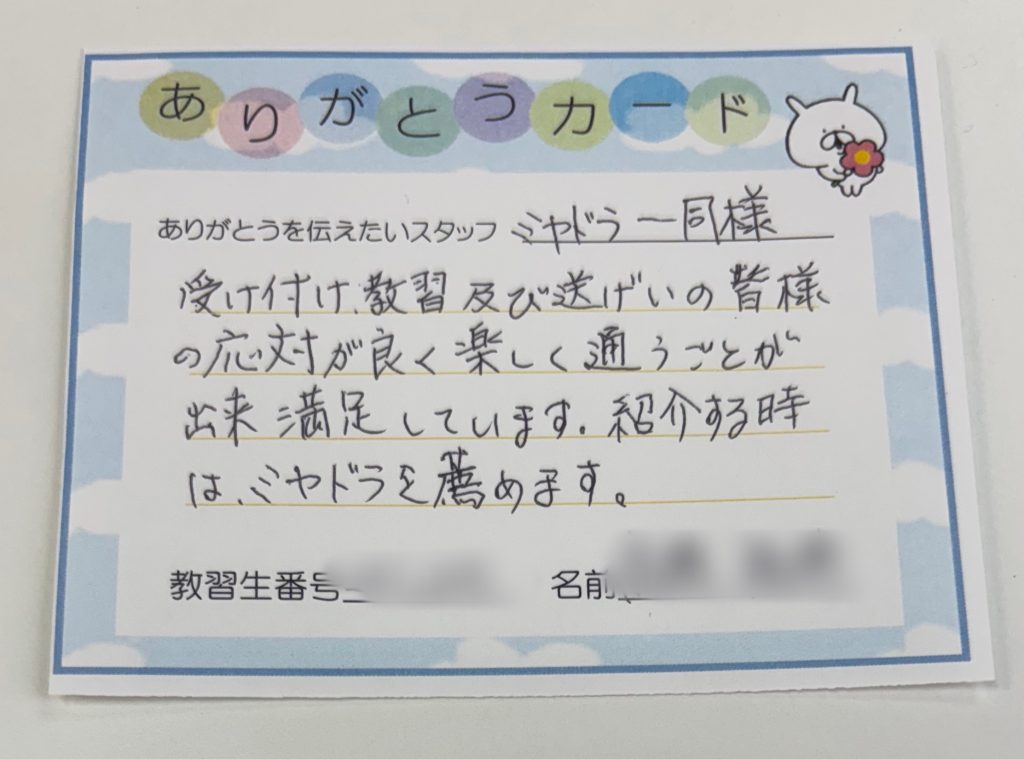 ありがとうカード
ありがとうを伝えたいスタッフ ミヤドラ一同様
受け付け、教習及び送げいの皆様
の応対が良く楽しく通うことが
出来満足しています。紹介する時
は、ミヤドラを薦めます。
教習生番号 名前